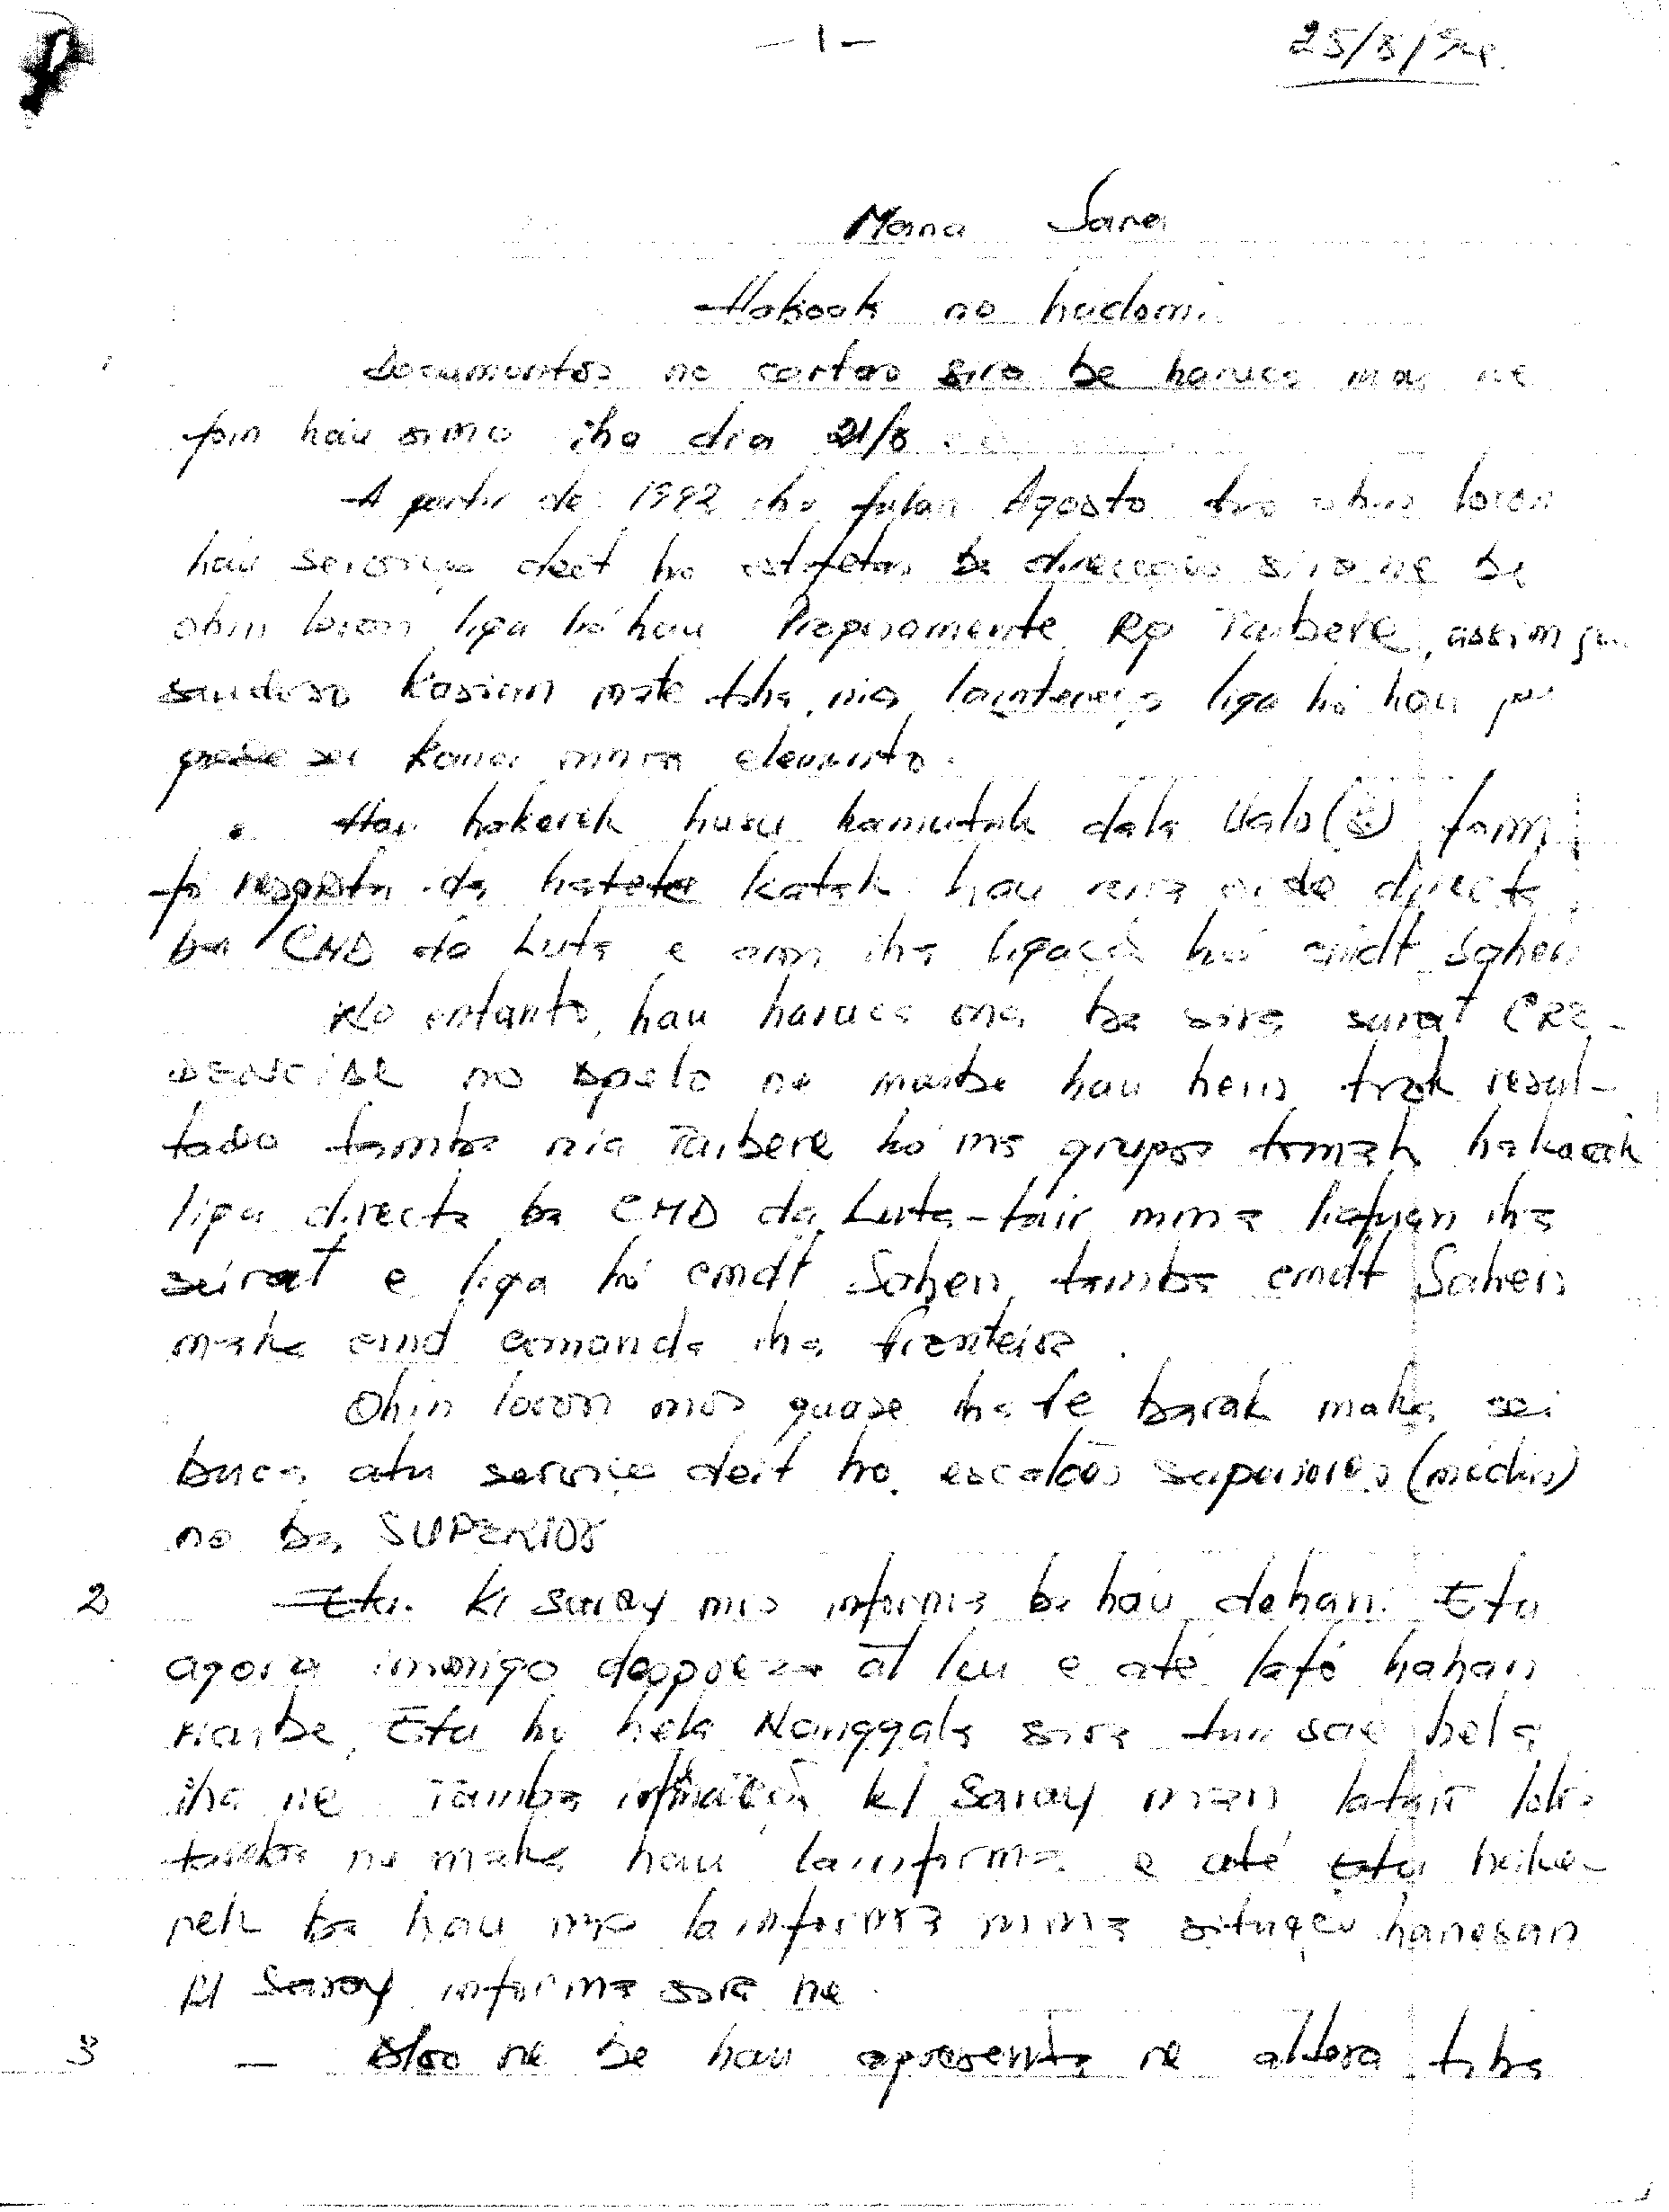 - 1 -
25/8/94.
Mana Sara
Hakoak no hadomi
Documentos no cartas sira be haruca mai ne
foin háu simo iha dia 21/8
A partir de 1992 iha fulan Agosto to'o ohin loron
háu serviço deit ho estafetas ba direcções sira ne be
ohin loron liga hó hau Propriamente Rp Taibere, assim que
saudoso Kasian mate tiha, nia lainteresse liga hó hau
sei kaner mesa elemento.
Hau hakerek husu hamutuk dala Ualo (8) foin
fó resposta ida hatete katak hau rasik direct
ba CMD da Luta e ami iha ligação hó cmdt Sahen
No entanto, hau haruca ona ba sira surat CRE-
DENCIAL no apelo ne maibe hau hein trak resul-
tado tamba nia Taibere hó nia grupos tomak hakarak
liga directa ba CMD da Luta - tuir nia liafuan iha
surat e liga hó cmdt Sahen, tamba cmdt Sahen
maka comanda iha fronteira.
Ohin loron mos quase iha fe barak maka sei
buca atu serviço deit ho escalões superiores (médio)
no ba SUPERIOR
2 Eta. Kl Saray mos informa ba háu dehan. Eta
agora inimigo despreza at leu e até lafó hahan
Maibe, Eta hó hela Nanggala sira tun sae hela
iha ne Tamba informação kl Saray man latuir lolo
tamba ne maka hau lainforma e até Eta hake-
rek ba hau mos lainforma nia situação hanesan
Kl Saray informa sira ne.
3 - Also ne be hau apresenta ne altera tiha